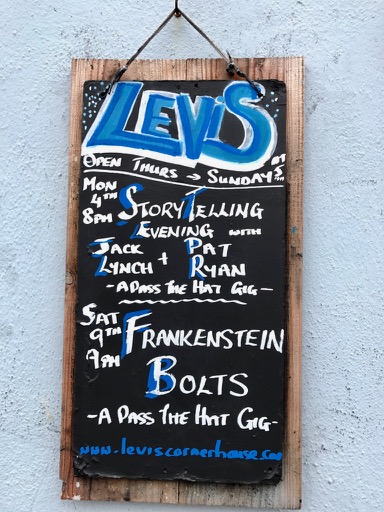 LEVIS
OPEN THURS → SUNDAYS AT 5PM
MON 4TH 8PM STORYTELLING
EVENING WITH
JACK LYNCH + PAT RYAN
- A PASS THE HAT GIG -
SAT 9TH 9PM FRANKENSTEIN
BOLTS
- A PASS THE HAT GIG -
www.leviscornerhouse.com